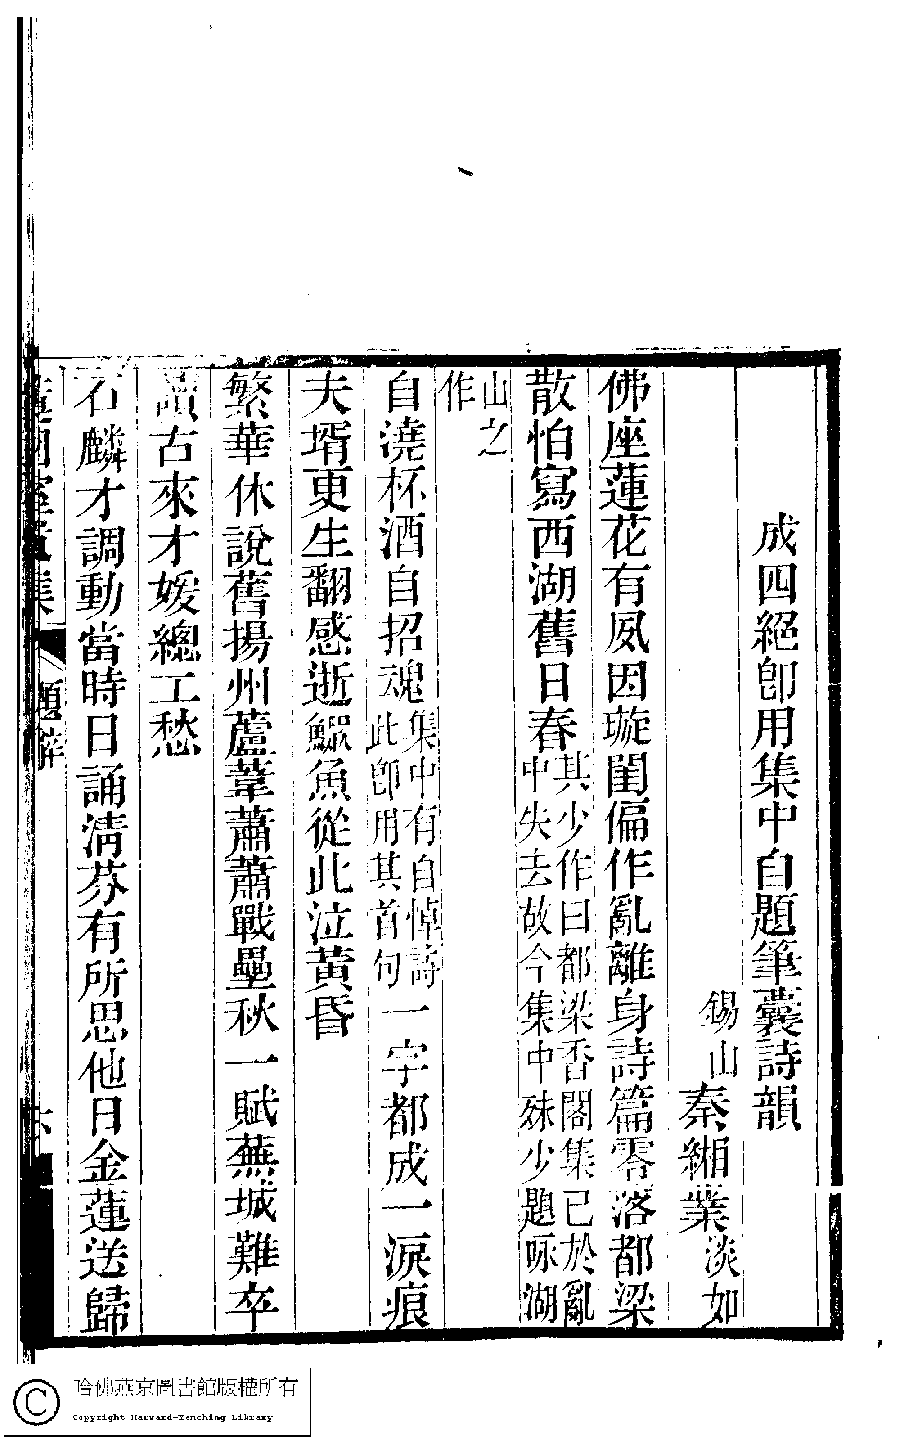 成四絕卽用集中自題筆囊詩韻
錫山秦緗業淡如
佛座蓮花有夙因璇閨偏作亂離身詩篇零落都梁
散怕寫西湖舊日春其少作曰都梁香閣集已於亂中失去故今集中殊少題咏湖
山之作
自澆杯酒自招魂集中有自悼詩此卽用其首句一字都成一淚痕
夫壻更生翻感逝鰥魚從此泣黃昏
繁華休說舊揚州蘆葦蕭蕭戰壘秋一賦蕪城難卒
讀古來才媛總工愁
石麟才調動當時日誦清芬有所思他日金蓮送歸
題辭
哈佛燕京圖書館版權所有
Copyright Harvard-Yenching Library